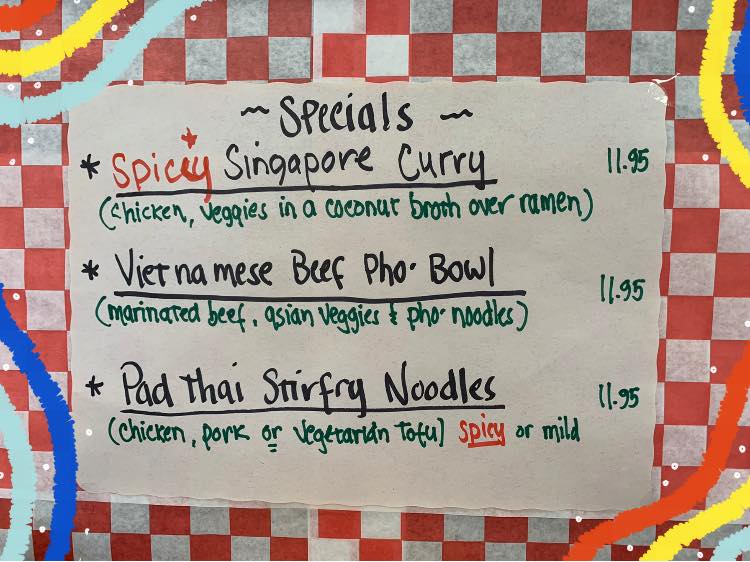 ~ Specials ~
* Spicy Singapore Curry 11.95
(chicken, veggies in a coconut broth over ramen)
* Vietnamese Beef Pho Bowl 11.95
(marinated beef, asian veggies & pho noodles)
* Pad Thai Stirfry Noodles 11.95
(chicken, pork or vegetarian tofu) spicy or mild